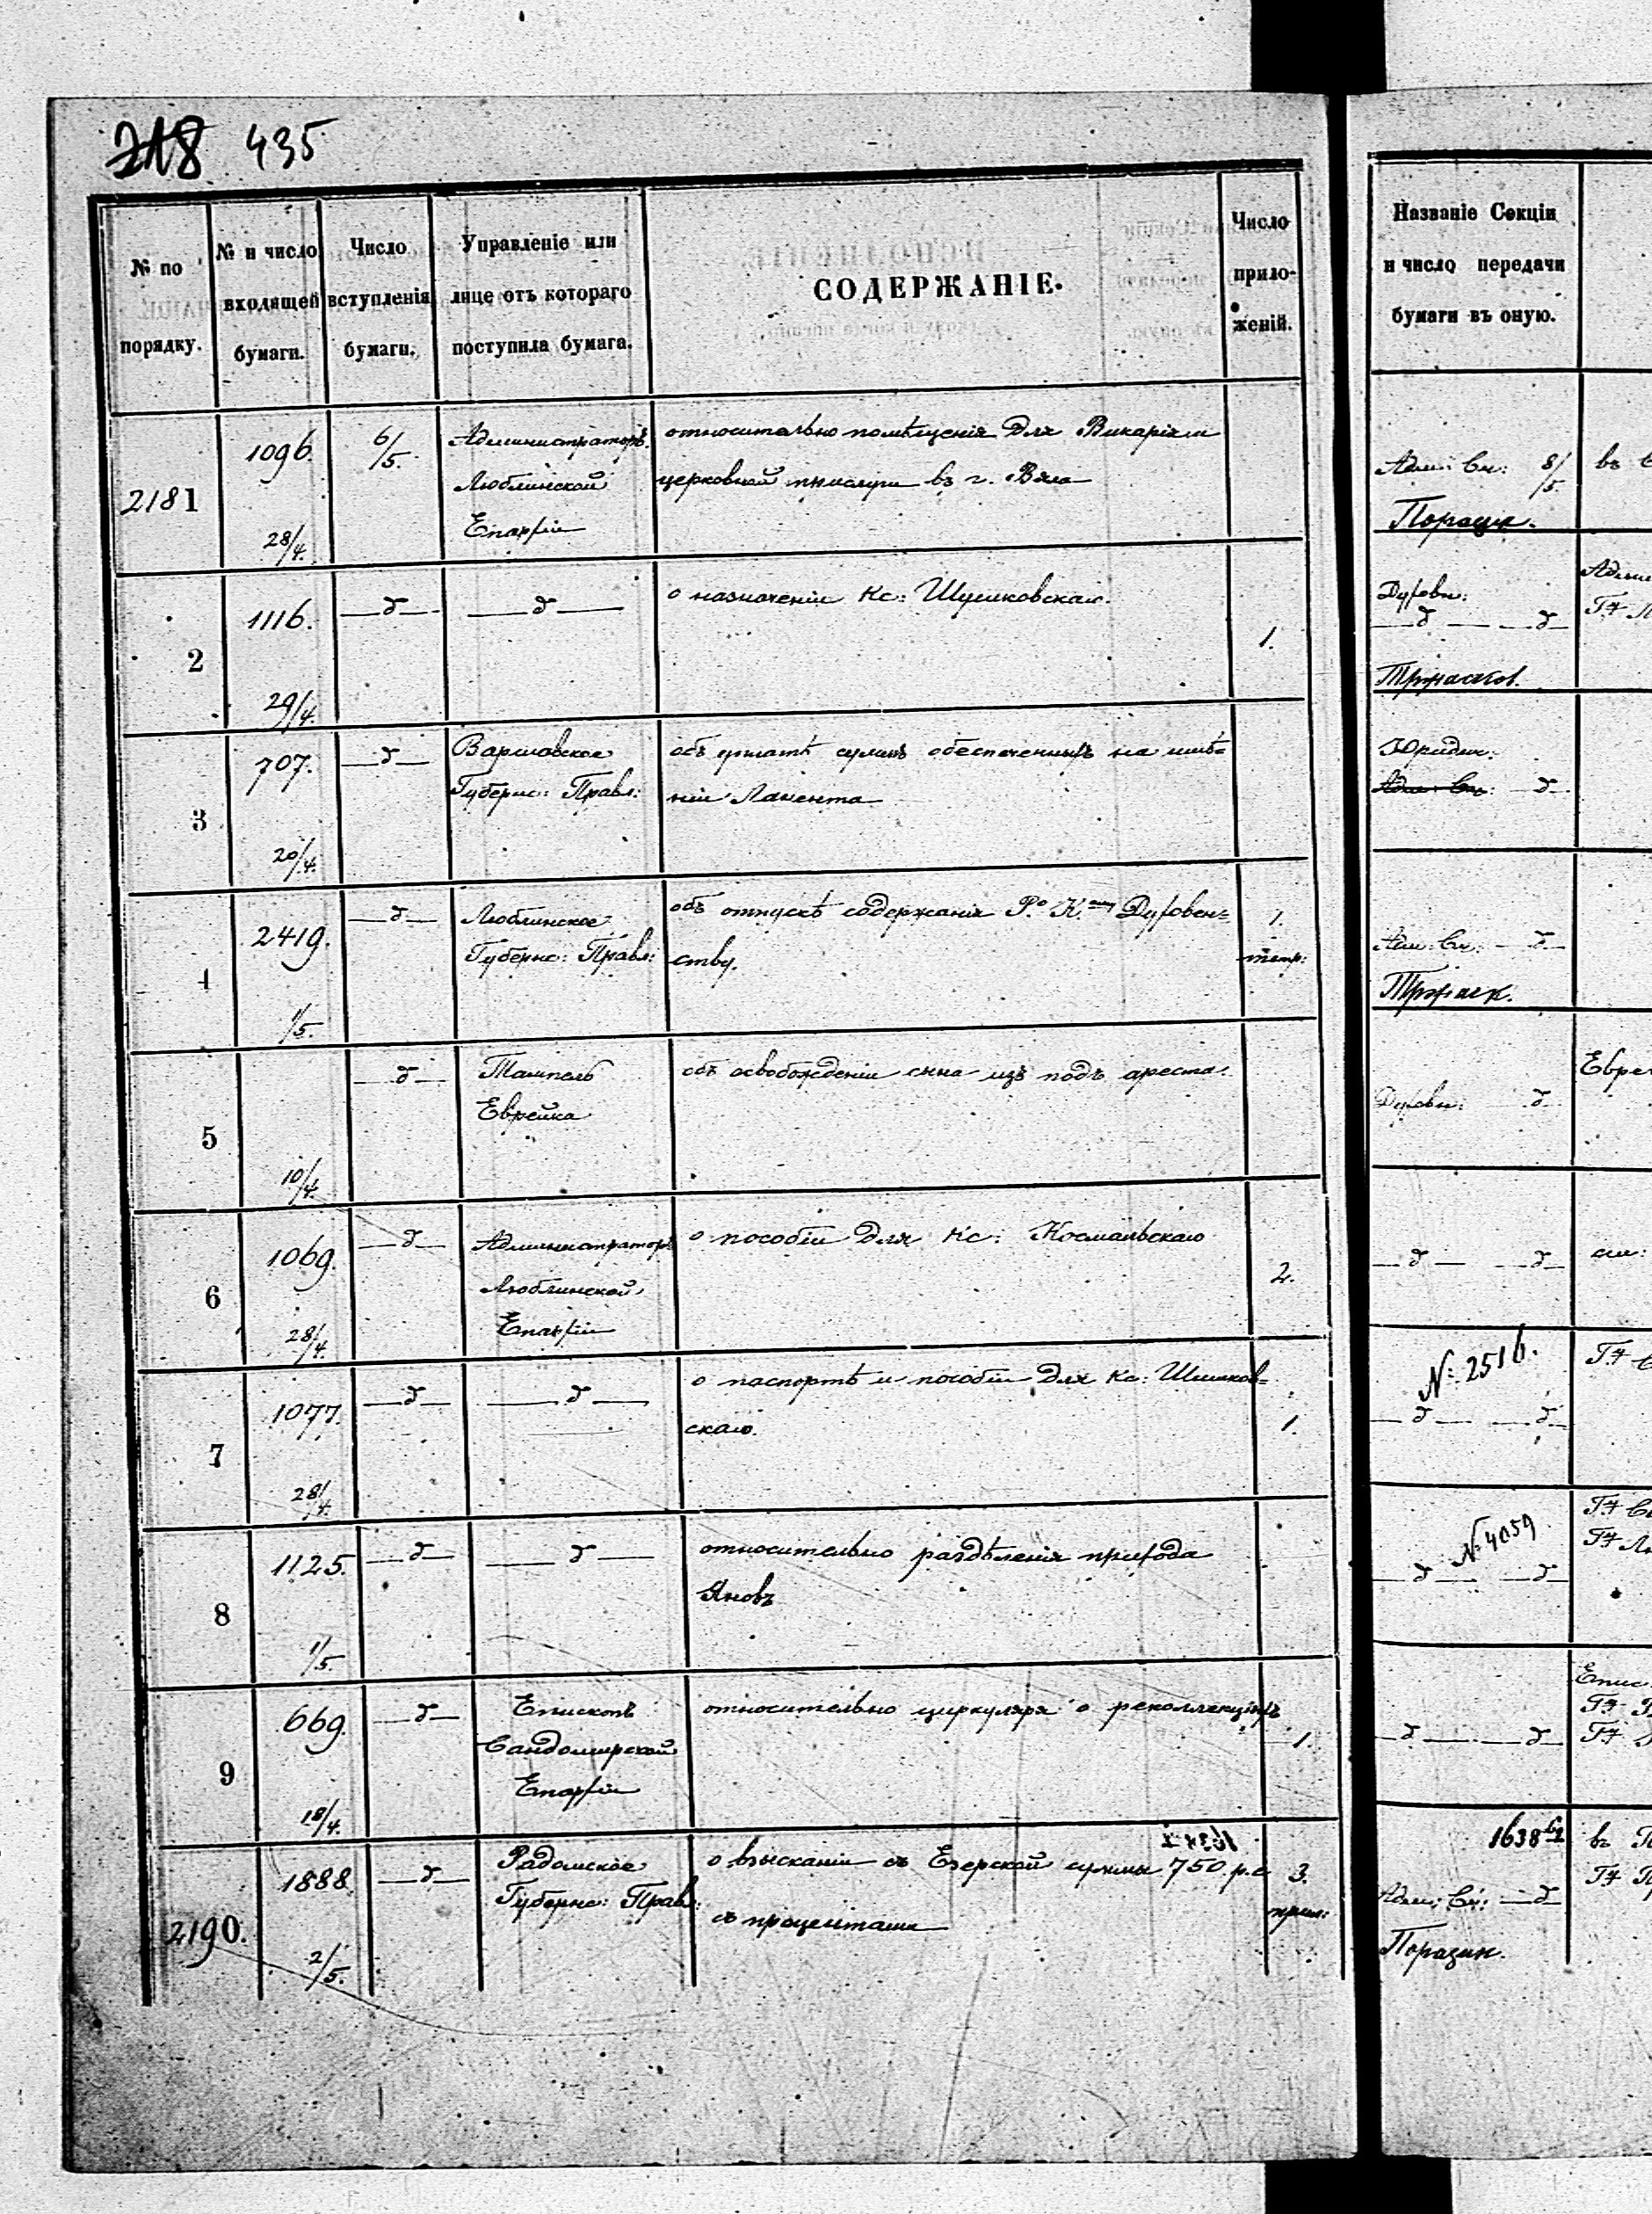 218 435
№ по порядку.
№ и число входящей бумаги.
Число вступленія бумаги.
Управленіе или лице отъ котораго поступила бумага.
СОДЕРЖАНІЕ.
Число прило-женій.
Названіе Секціи и число передачи бумаги въ оную.
2181
1096.
28/4.
6/5.
Администраторъ
Люблинской
Епархіи
относительно помѣщенія для Викарія и
церковной прислуги въ г.
Адм: Сек: 8/5.
въ
2
1116.
29/4.
—д—
—д—
о назначеніи Кс:
1.
Духовн:
—д— —д—
3
707.
20/4.
—д—
Варшавское
Губернс: Правл:
объ уплатѣ суммъ обеспеченныхъ на имѣ=
ніи
Юридич:
Адм: Сек: —д—
4
2419.
1/5.
—д—
Люблинское
Губернс: Правл:
объ отпускѣ содержанія Р.о К.ому Духовен=
ству.
1.
тетр:
Адм: Сек: —д—
5
10/4.
—д—
Тампель
Еврейка
объ освобожденіи сына изъ подъ ареста.
Духовн: —д—
Евре
6
1069.
28/4.
—д—
Администраторъ
Люблинской
Епархіи
о пособіи для Кс:
2.
—д— —д—
см:
7
1077.
28/4.
—д—
—д—
о паспортѣ и пособіи для Кс: Шишков=
скаго.
1.
№: 2516.
—д— —д—
8
1125.
1/5.
—д—
—д—
относительно раздѣленія прихода
Яновъ
№ 4059
—д— —д—
9
669.
18/4.
—д—
Епископъ
Сандомирской
Епархіи
относительно циркуляра о реколлекціяхъ
1.
—д— —д—
Епис
2190.
1888.
2/5.
—д—
Радомское
Губернс: Правл:
о взысканіи съ Езерской суммы 750 р.с.
съ процентами
3.
прил:
1638
Адм: Сек: —д—
въ